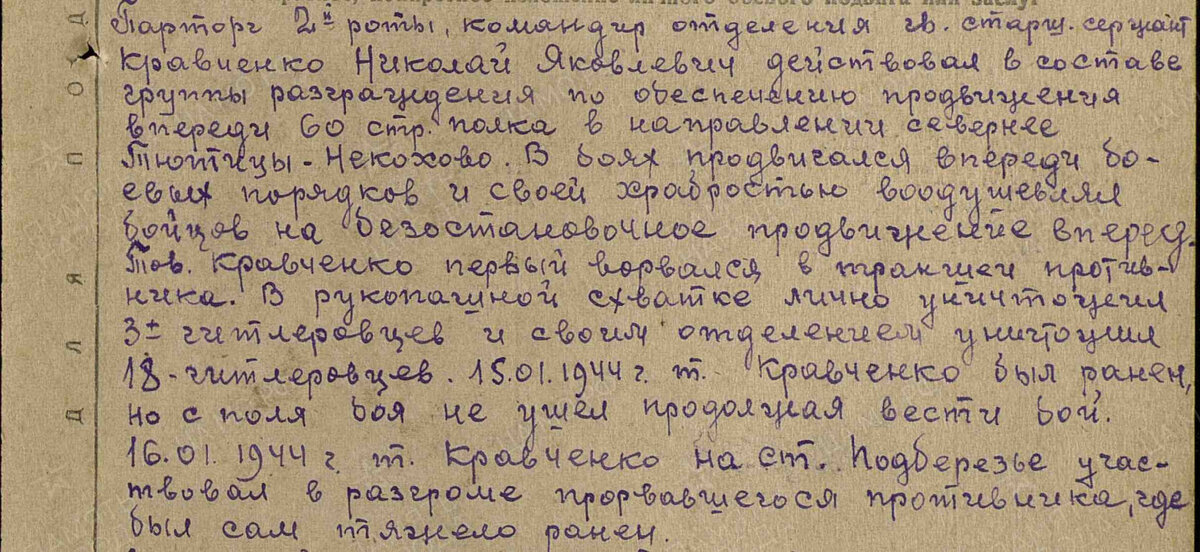 Парторг 2й роты, командир отделения гв. старш. сержант
Кравченко Николай Яковлевич действовал в составе
группы разграждения по обеспечению продвижения
впереди 60 стр. полка в направлении севернее
Тютицы - Некохово. В боях продвигался впереди бо-
евых порядков и своей храбростью воодушевлял
бойцов на безостановочное продвижение вперед.
Тов. Кравченко первый ворвался в траншеи против-
ника. В рукопашной схватке лично уничтожил
3± гитлеровцев и своим отделением уничтожил
18 - гитлеровцев. 15.01.1944 г. т. Кравченко был ранен,
но с поля боя не ушёл продолжая вести бой.
16.01.1944 г. т. Кравченко на ст. Подберезье учас-
твовал в разгроме прорвавшегося противника, где
был сам тяжело ранен.
Д О П Я Л Д